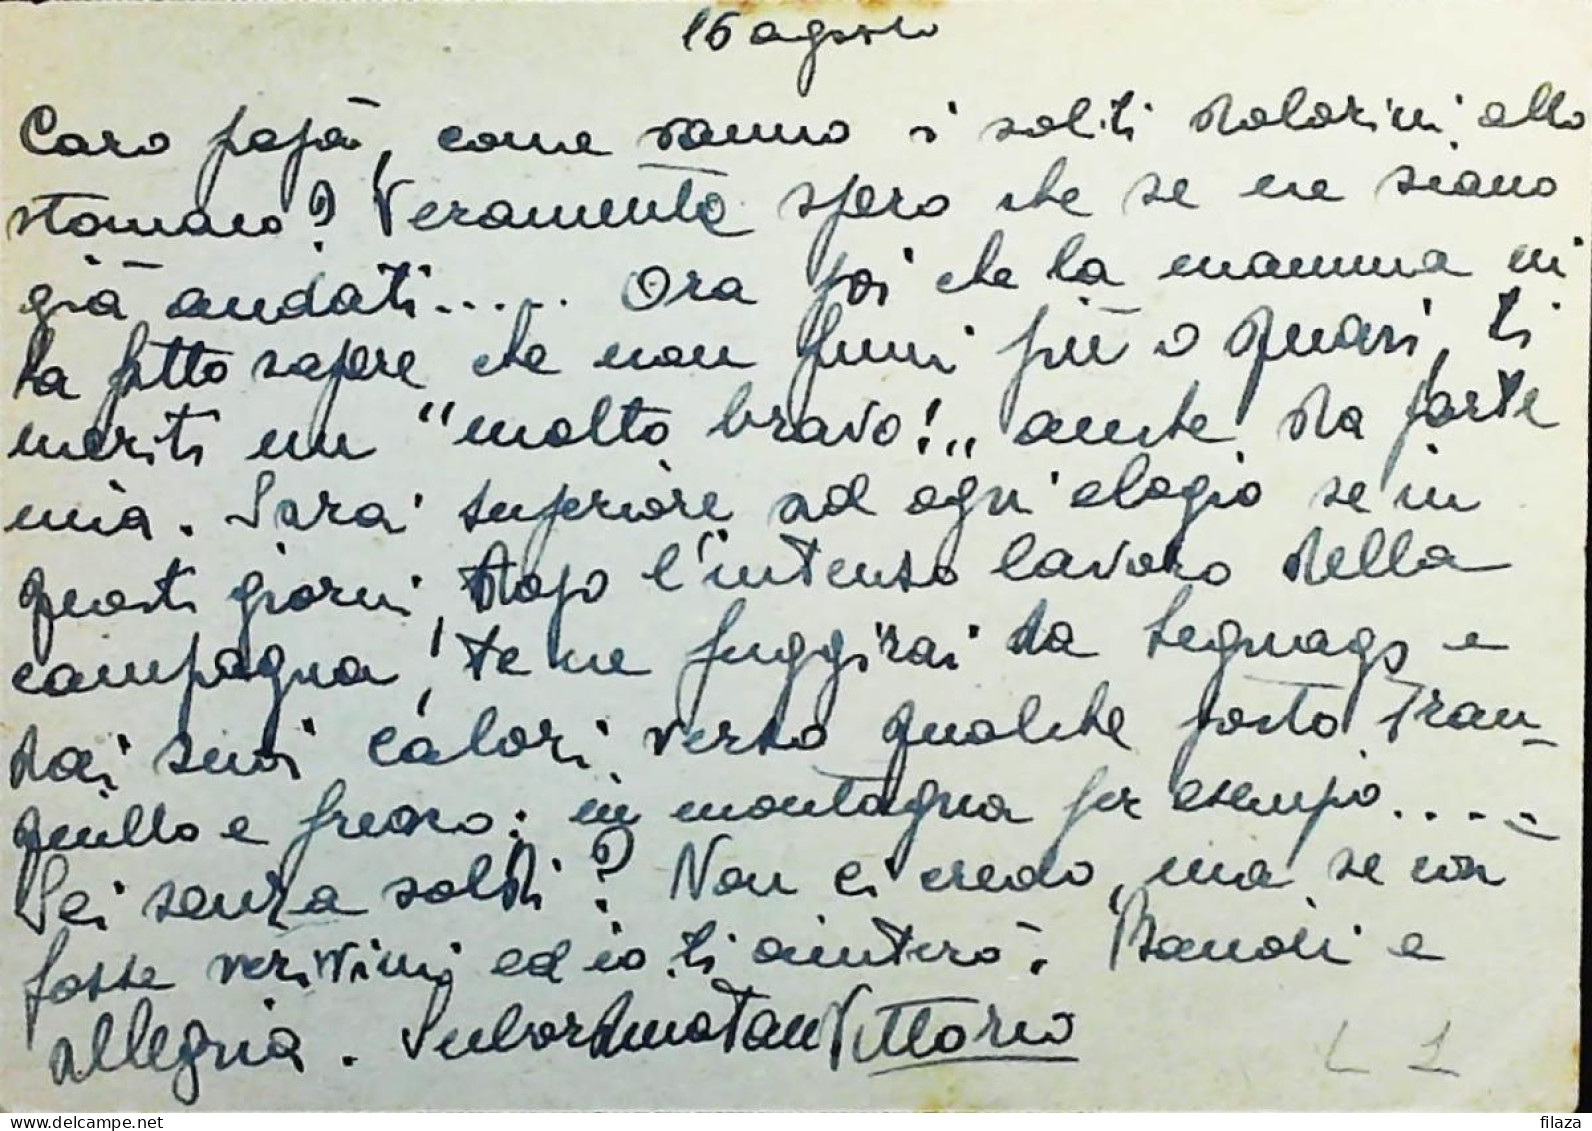 16 agosto
Caro papà, come vanno i soliti dolorini allo
stomaco? Veramente spero che se ne siano
già andati..... Ora poi che la mamma mi
ha fatto sapere che non fumi più o quasi, ti
meriti un "molto bravo!„ anche da parte
mia. Sarà superiore ad ogni elogio se in
questi giorni, dopo l'intenso lavoro della
campagna, te ne fuggirai da Legnago e
dai suoi calori verso qualche posto tran-
quillo e fresco: in montagna per esempio.....
Sei senza soldi? Non ci credo, ma se così
fosse scrivimi ed io ti aiuterò. Bacioni e
allegria. Vittorio
L 1
filaza